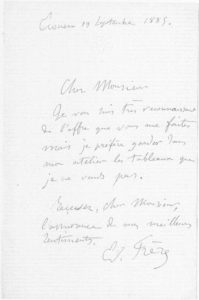 Ecouen 19 Septembre 1885.
Cher Monsieur
Je vous suis très reconnaissant
de l'offre que vous me faites
mais je préfère garder dans
mon atelier les tableaux que
je ne vends pas.
Recevez, cher Monsieur,
l'assurance de mes meilleurs
sentiments.
Ed. Frère